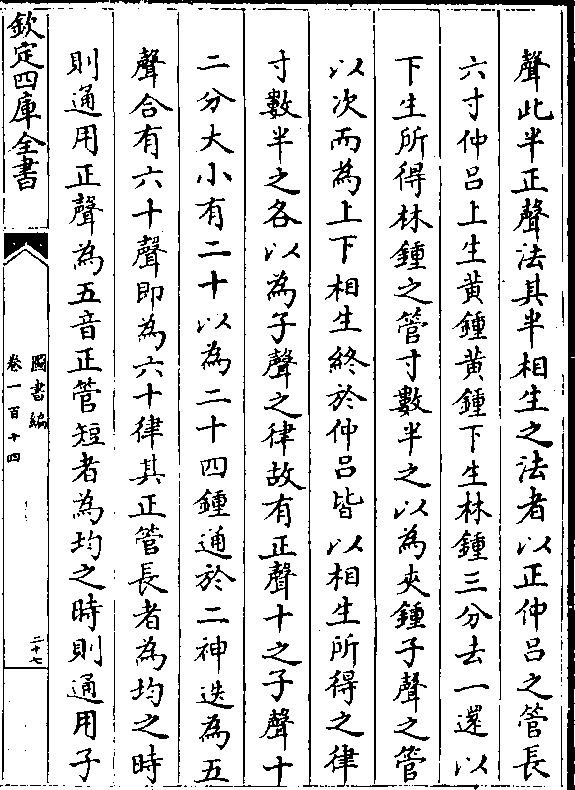 聲此半正聲法其半相生之法者以正仲呂之管長
六寸仲呂上生黄鍾黄鍾下生林鍾三分去一還以
下生所得林鍾之管寸數半之以為夾鍾子聲之管
以次而為上下相生終於仲呂皆以相生所得之律
寸數半之各以為子聲之律故有正聲十之子聲十
二分大小有二十以為二十四鍾通於二神迭為五
聲合有六十聲即為六十律其正管長者為均之時
則通用正聲為五音正管短者為均之時則通用子
欽定四庫全書
圖書編
卷一百十四
二十七